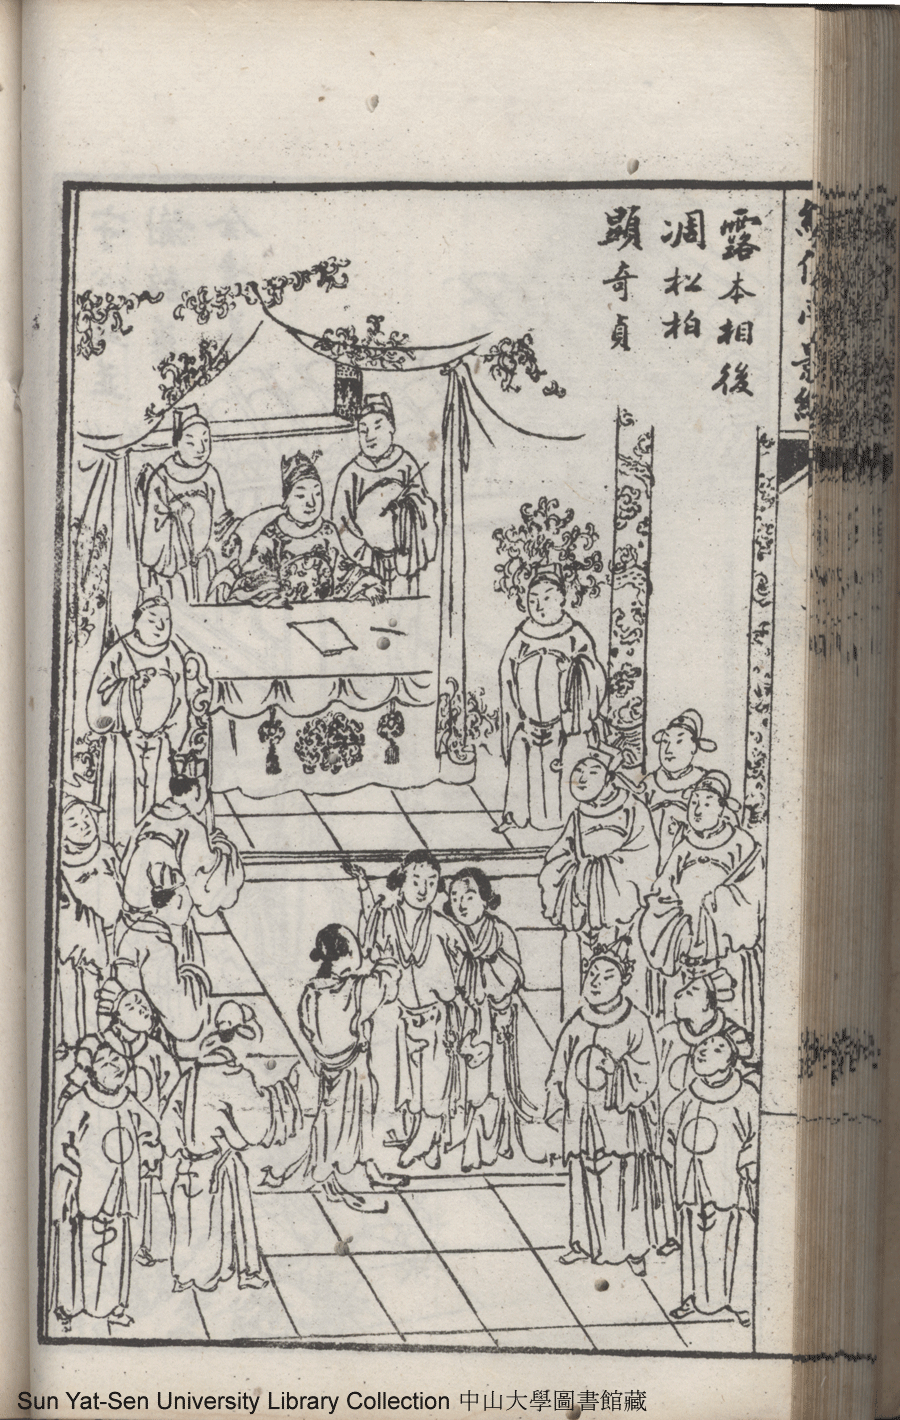 露本相後
凋松柏
顯奇貞
Sun Yat-Sen University Library Collection 中山大學圖書館藏